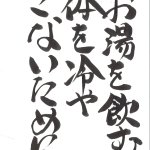 お湯を飲む
体を冷や
さないために